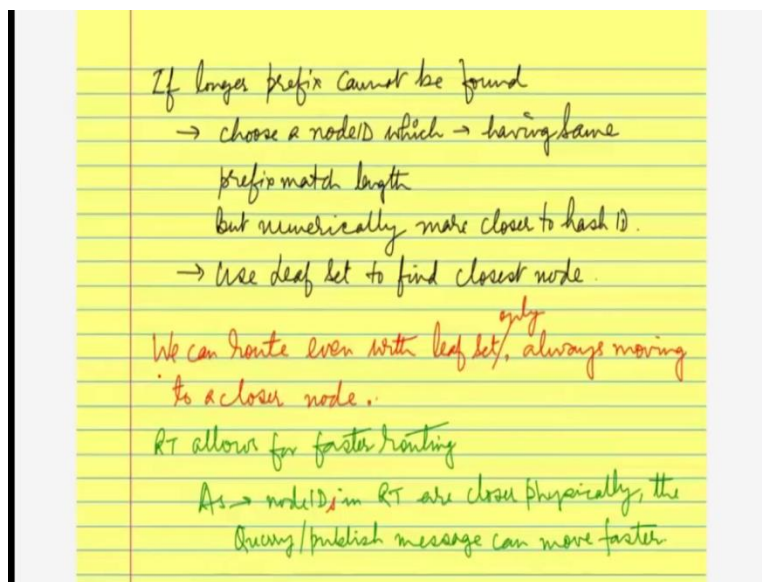 If longer prefix cannot be found
→ choose a nodeID which → having same
prefix match length
but numerically more closer to hash ID.
→ Use leaf set to find closest node.
only
We can route even with leaf set, always moving
to a closer node.
RT allows for faster routing
As → nodeIDs in RT are closer physically, the
Query/publish message can move faster